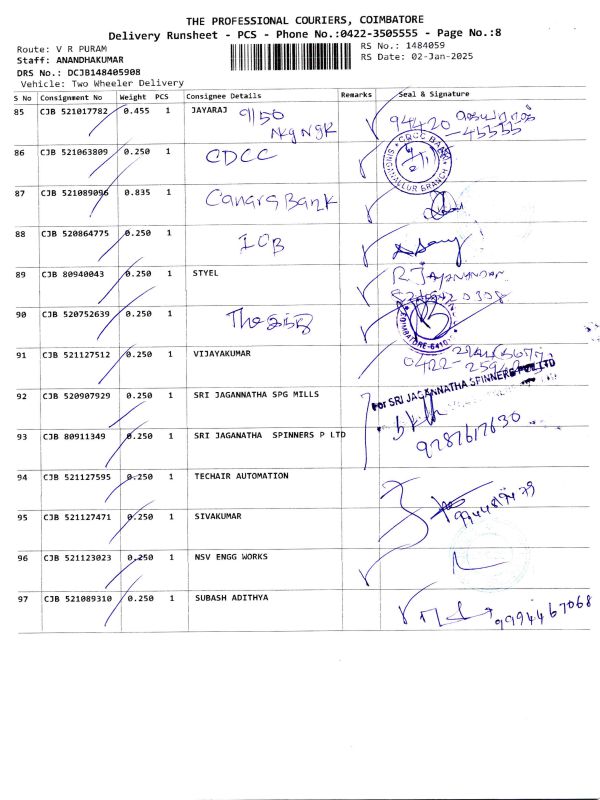 THE PROFESSIONAL COURIERS, COIMBATORE
Delivery Runsheet - PCS - Phone No.:0422-3505555 - Page No.:8
Route: V R PURAM
RS No.: 1484059
Staff: ANANDHAKUMAR
RS Date: 02-Jan-2025
DRS No.: DCJB148405908
Vehicle: Two Wheeler Delivery
S No Consignment No Weight PCS Consignee Details Remarks Seal & Signature
85 CJB 521017782 0.455 1 JAYARAJ 9150
94420
NKG NGK - 45555
86 CJB 521063809 0.250 1 CDCC
SINGANALLUR BRANCH
87 CJB 521089096 0.835 1 Canara Bank
88 CJB 520864775 0.250 1 IOB
89 CJB 80940043 0.250 1 STYEL
R Jayanandan
90 CJB 520752639 0.250 1
COIMBATORE-6410
91 CJB 521127512 0.250 1 VIJAYAKUMAR
0422-
92 CJB 520907929 0.250 1 SRI JAGANNATHA SPG MILLS
For SRI JAGANNATHA SPINNERS P LTD
93 CJB 80911349 0.250 1 SRI JAGANATHA SPINNERS P LTD
9787617630
94 CJB 521127595 0.250 1 TECHAIR AUTOMATION
95 CJB 521127471 0.250 1 SIVAKUMAR
96 CJB 521123023 0.250 1 NSV ENGG WORKS
97 CJB 521089310 0.250 1 SUBASH ADITHYA
9994467068